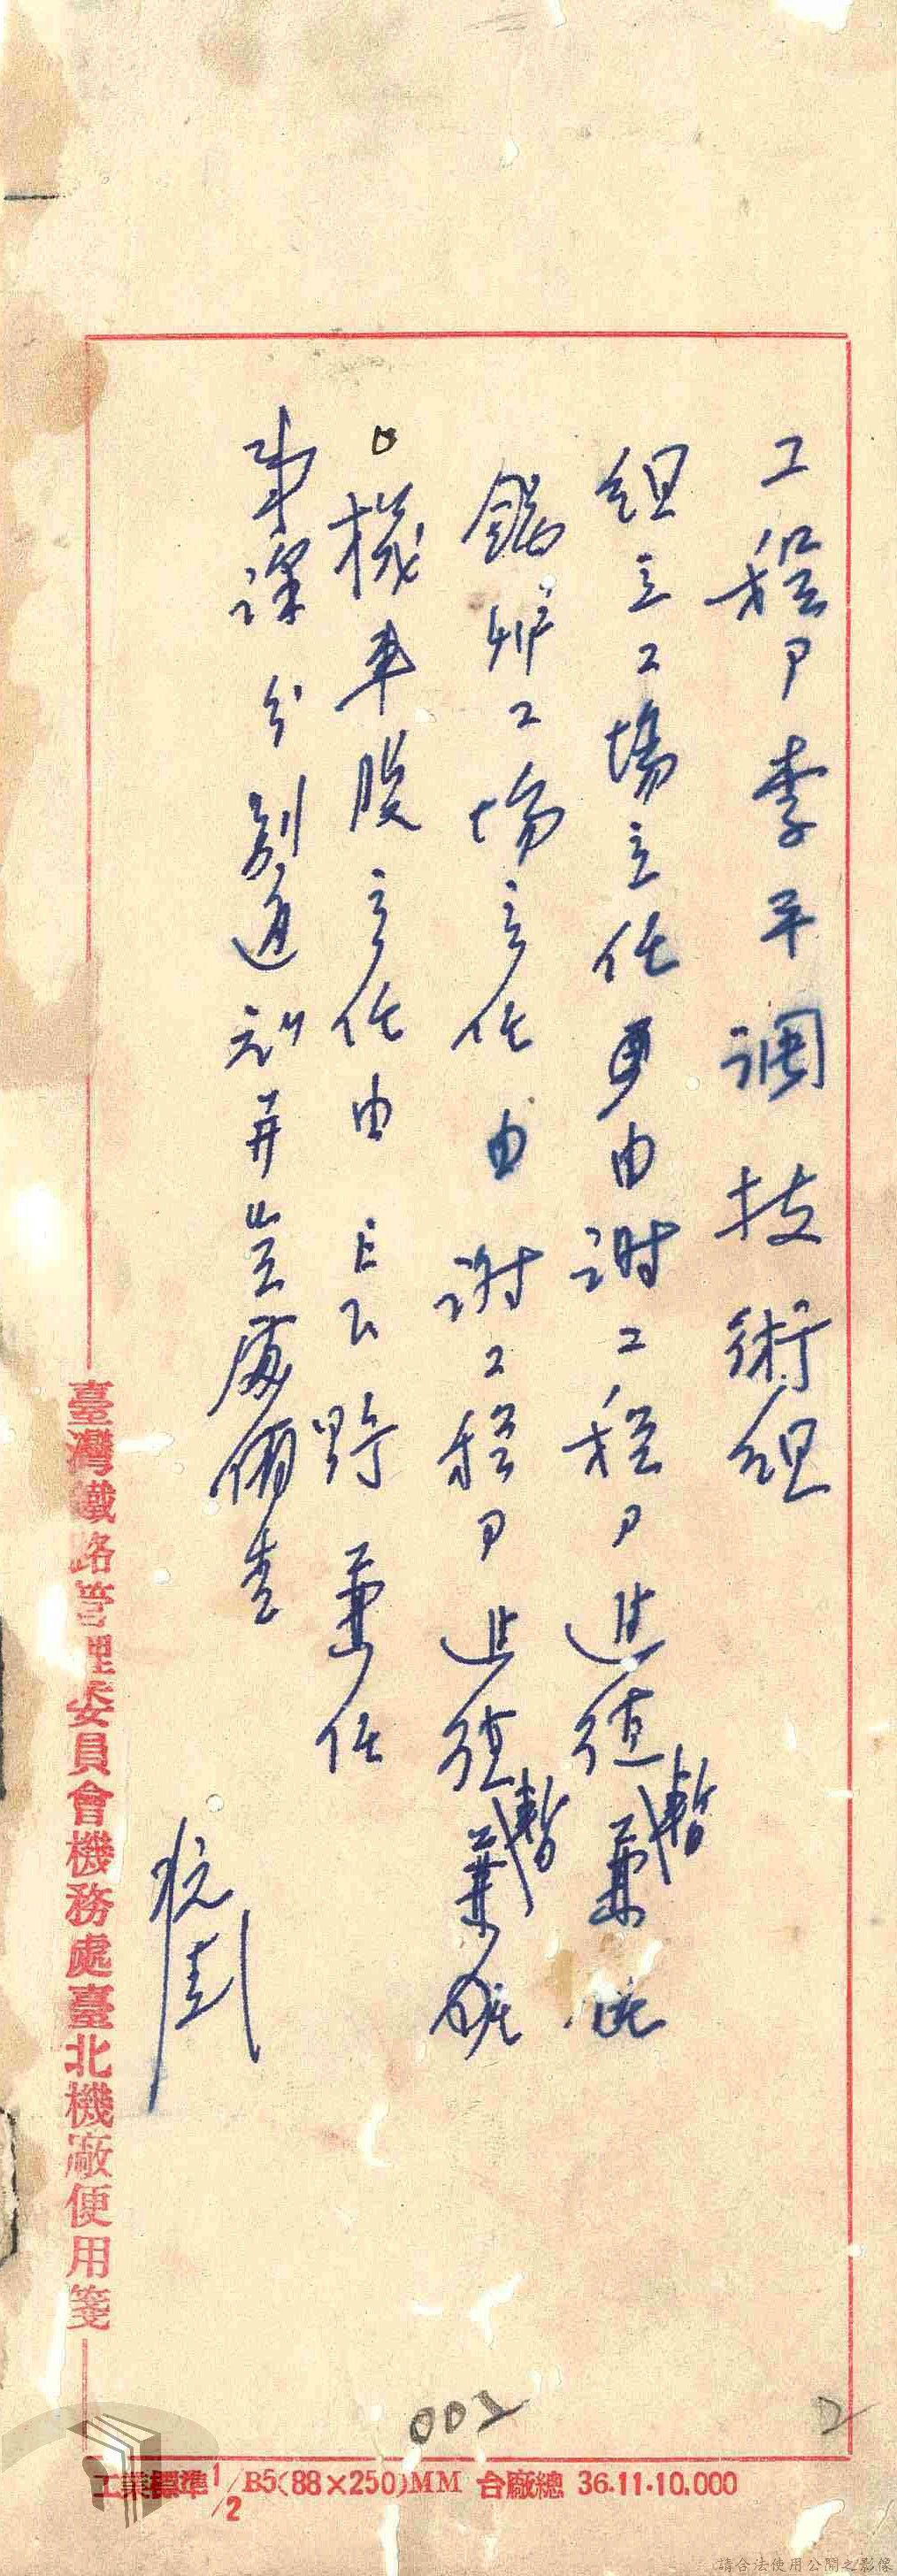 工程司李平調技術組
組立工場主任更由謝工程司進德暫兼
鍋炉工場主任由謝工程司進德暫兼
機車股主任由 野 兼任
事課分別通知并登處備查
臺灣鐵路管理委員會機務處臺北機廠便用箋
002
2
工業標準1/2 B5(88×250)MM 台廠總 36.11.10,000
請合法使用公開之影像